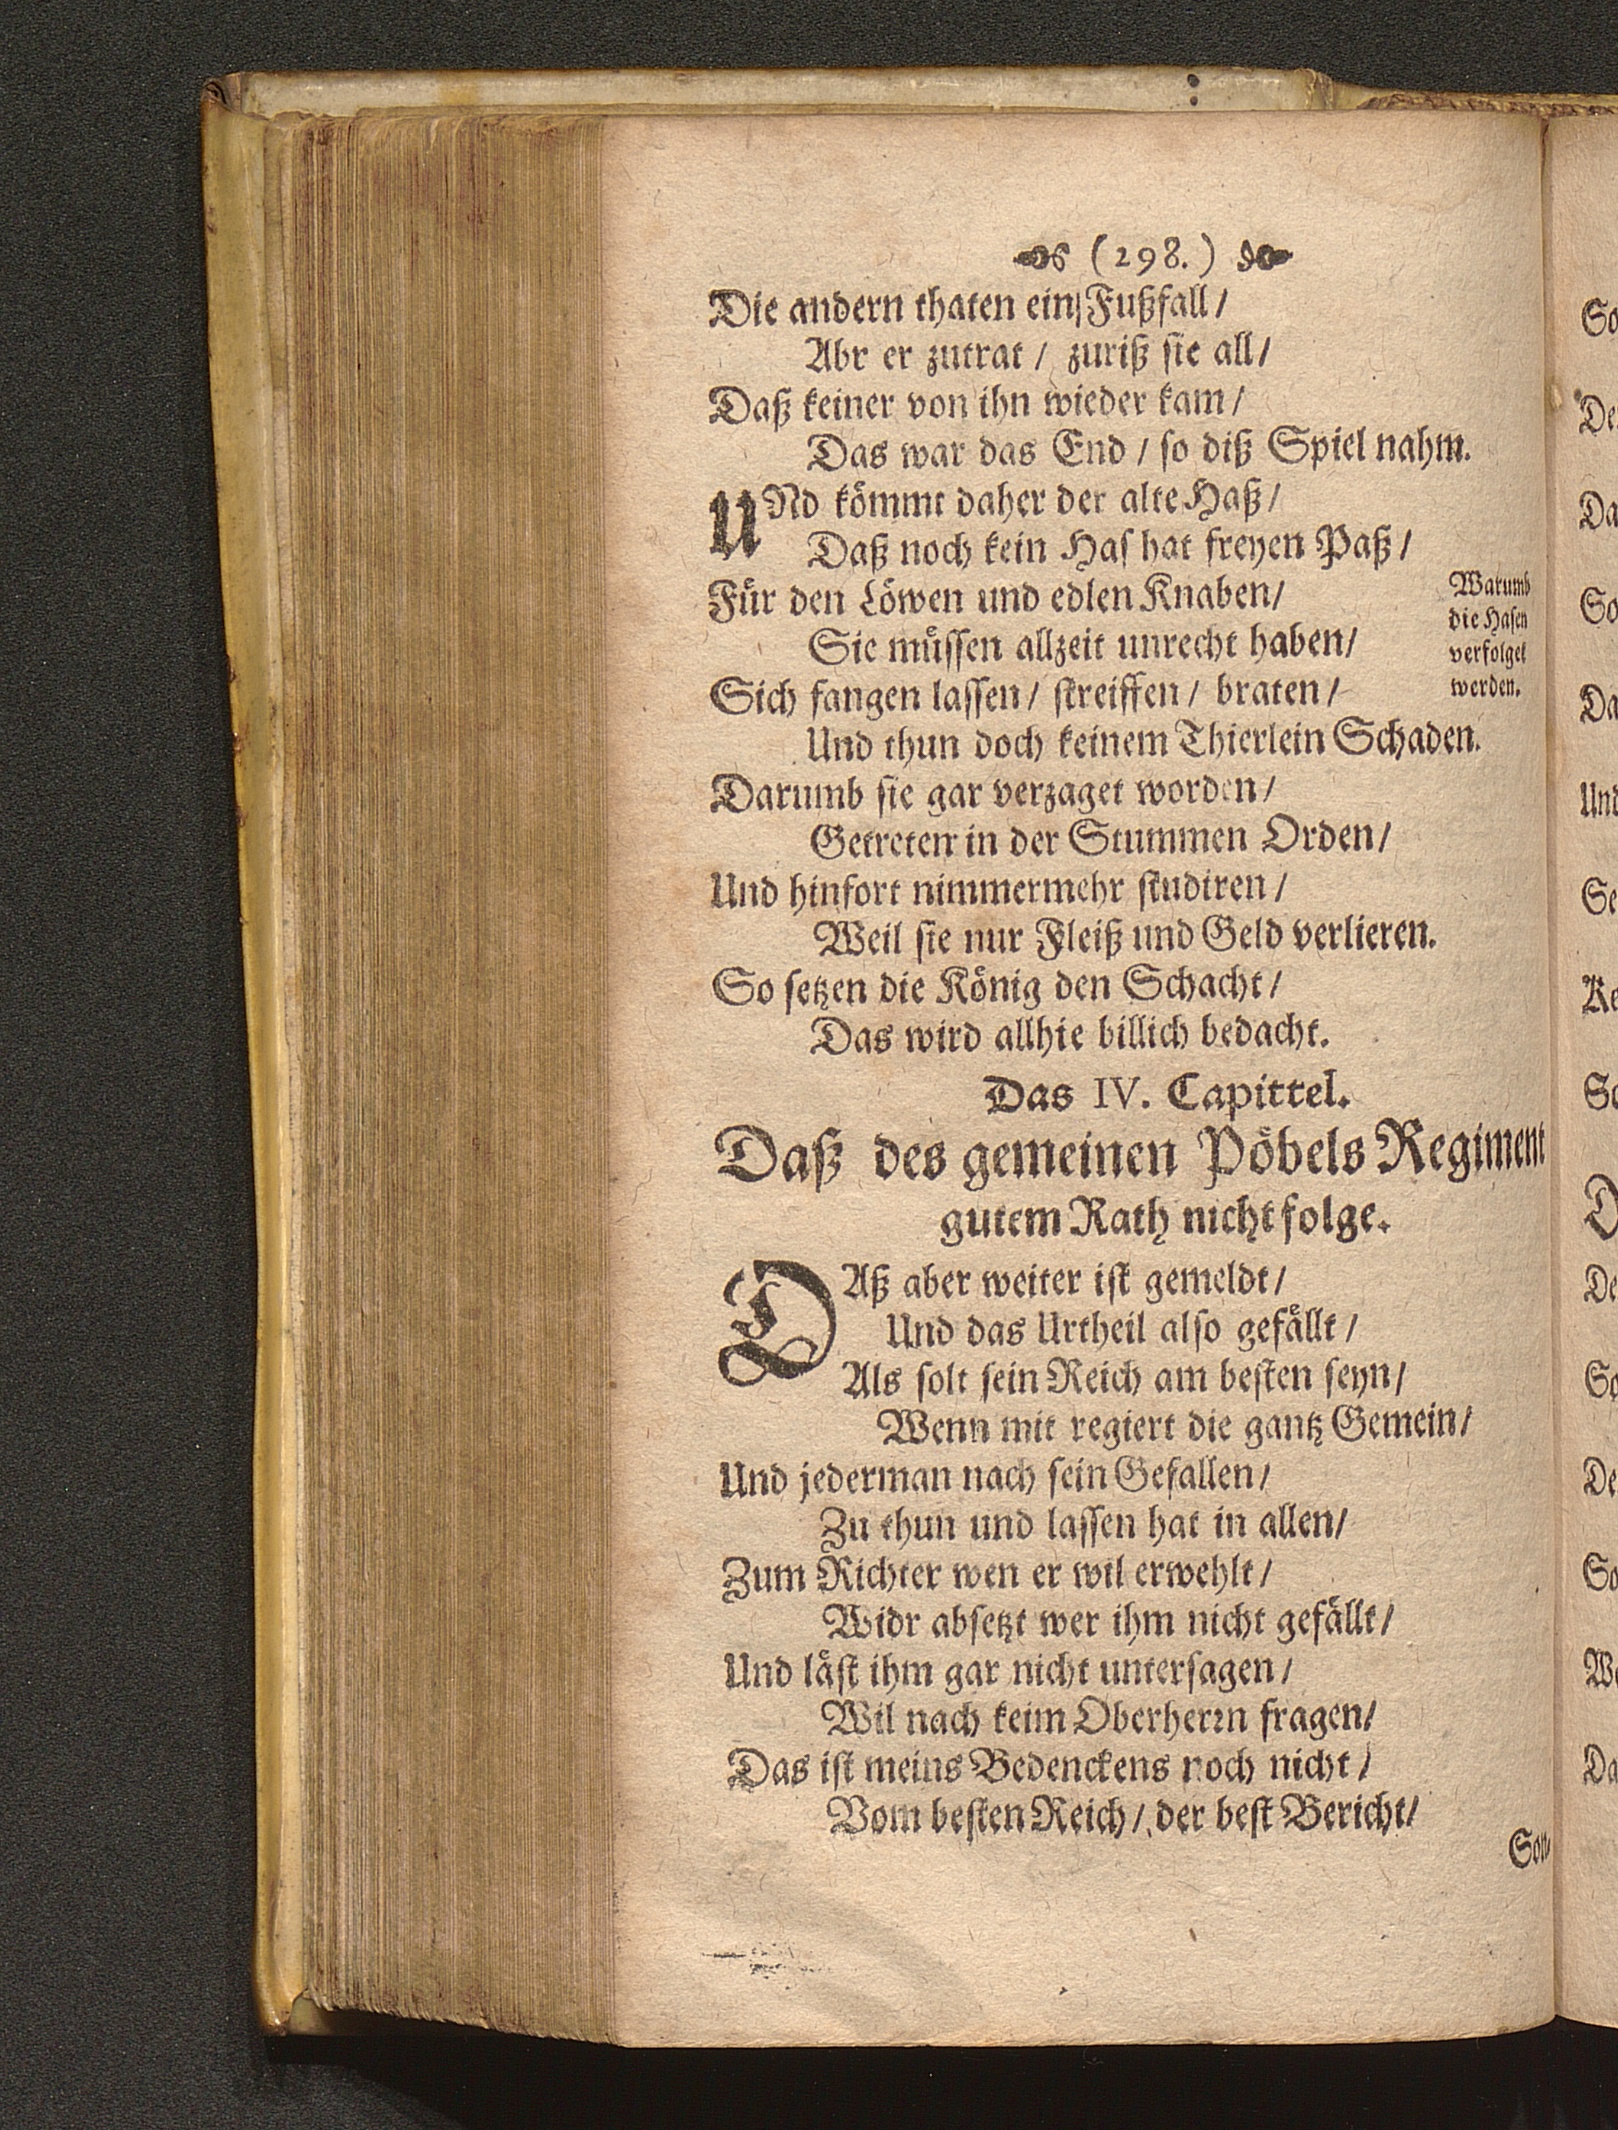 (298.)
Die andern thaten ein Fußfall /
Abr er zutrat / zuriß sie all /
Daß keiner von ihn wieder kam /
Das war das End / so diß Spiel nahm.
UNd koͤmmt daher der alte Haß /
Daß noch kein Has hat freyen Paß /
Fuͤr den Loͤwen und edlen Knaben /
Sie muͤssen allzeit unrecht haben /
Sich fangen lassen / streiffen / braten /
Und thun doch keinem Thierlein Schaden.
Warumb
die Hasen
verfolget
werden.
Darumb sie gar verzaget worden /
Getreten in der Stummen Orden /
Und hinfort nimmermehr studiren /
Weil sie nur Fleiß und Geld verlieren.
So setzen die Koͤnig den Schacht /
Das wird allhie billich bedacht.
Das IV. Capittel.
Daß des gemeinen Poͤbels Regiment
gutem Rath nicht folge.
DAß aber weiter ist gemeldt /
Und das Urtheil also gefaͤllt /
Als solt sein Reich am besten seyn /
Wenn mit regiert die gantz Gemein /
Und jederman nach sein Gefallen /
Zu thun und lassen hat in allen /
Zum Richter wen er wil erwehlt /
Widr absetzt wer ihm nicht gefaͤllt /
Und laͤst ihm gar nicht untersagen /
Wil nach keim Oberherrn fragen /
Das ist meins Bedenckens noch nicht /
Vom besten Reich / der best Bericht /
Son-